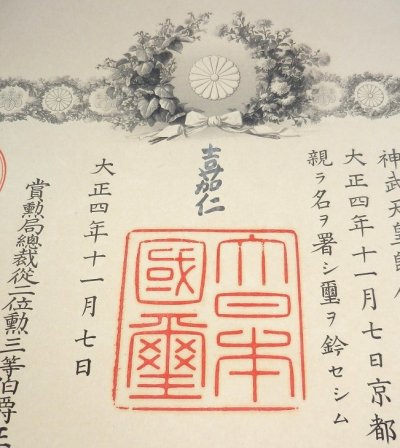 神武天皇
大正四年十一月七日京都
親ラ名ヲ署シ璽ヲ鈐セシム
嘉仁
大日本國璽
大正四年十一月七日
賞勲局總裁從二位勲三等伯爵